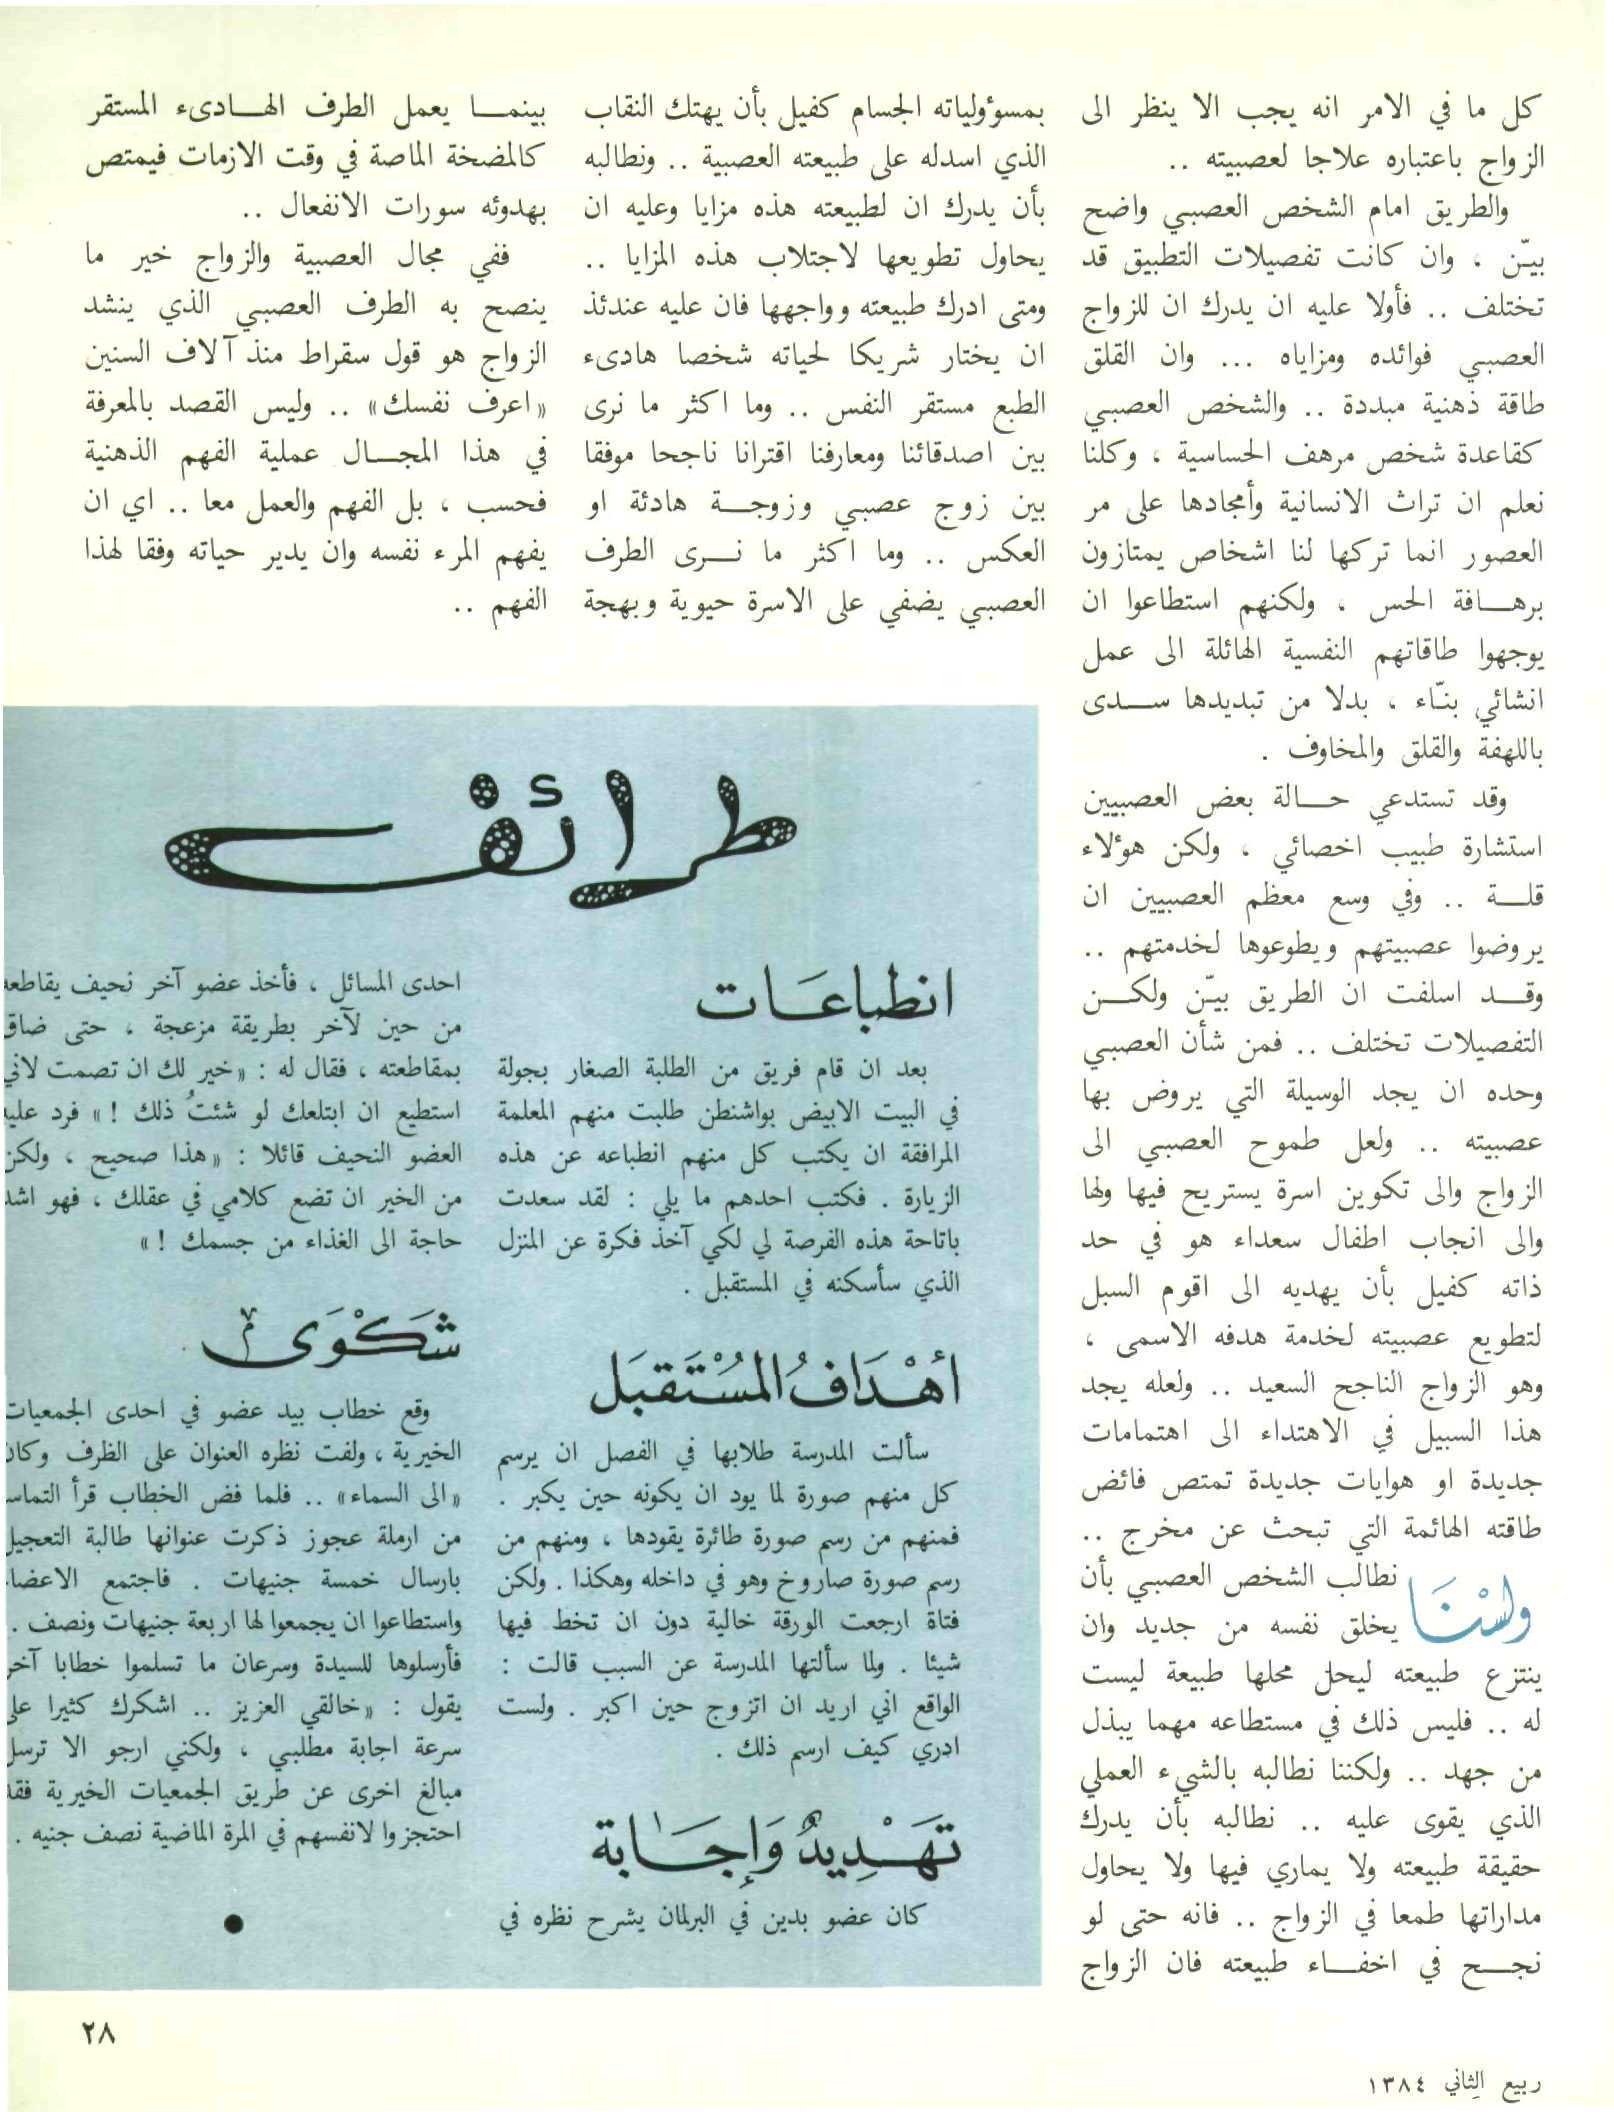 كل ما في الامر انه يجب الا ينظر الى
الزواج باعتباره علاجا لعصبيته ..
والطريق امام الشخص العصبي واضح
بيّن ، وان كانت تفصيلات التطبيق قد
تختلف .. فأولا عليه ان يدرك ان للزواج
العصبي فوائده ومزاياه ... وان القلق
طاقة ذهنية مبددة .. والشخص العصبي
كقاعدة شخص مرهف الحساسية ، وكلنا
نعلم ان تراث الانسانية وأمجادها على مر
العصور انما تركها لنا اشخاص يمتازون
برهافة الحس ، ولكنهم استطاعوا ان
يوجهوا طاقاتهم النفسية الهائلة الى عمل
انشائي بنّاء ، بدلا من تبديدها سدى
باللهفة والقلق والمخاوف .
وقد تستدعي حالة بعض العصبيين
استشارة طبيب اخصائي ، ولكن هوٴلاء
قلة .. وفي وسع معظم العصبيين ان
يروضوا عصبيتهم ويطوعوها لخدمتهم ..
وقد اسلفت ان الطريق بيّن ولكن
التفصيلات تختلف .. فمن شأن العصبي
وحده ان يجد الوسيلة التي يروض بها
عصبيته .. ولعل طموح العصبي الى
الزواج والى تكوين اسرة يستريح فيها ولها
والى انجاب اطفال سعداء هو في حد
ذاته كفيل بأن يهديه الى اقوم السبل
لتطويع عصبيته لخدمة هدفه الاسمى ،
وهو الزواج الناجح السعيد .. ولعله يجد
هذا السبيل في الاهتداء الى اهتمامات
جديدة او هوايات جديدة تمتص فائض
طاقته الهائمة التي تبحث عن مخرج ..
ولسْنَا نطالب الشخص العصبي بأن
يخلق نفسه من جديد وان
ينتزع طبيعته ليحل محلها طبيعة ليست
له .. فليس ذلك في مستطاعه مهما يبذل
من جهد .. ولكننا نطالبه بالشيء العملي
الذي يقوى عليه .. نطالبه بأن يدرك
حقيقة طبيعته ولا يماري فيها ولا يحاول
مداراتها طمعا في الزواج .. فانه حتى لو
نجح في اخفاء طبيعته فان الزواج
بمسوٴولياته الجسام كفيل بأن يهتك النقاب
الذي اسدله على طبيعته العصبية .. ونطالبه
بأن يدرك ان لطبيعته هذه مزايا وعليه ان
يحاول تطويعها لاجتلاب هذه المزايا ..
ومتى ادرك طبيعته وواجهها فان عليه عندئذ
ان يختار شريكا لحياته شخصا هادىء
الطبع مستقر النفس .. وما اكثر ما نرى
بين اصدقائنا ومعارفنا اقترانا ناجحا موفقا
بين زوج عصبي وزوجة هادئة او
العكس .. وما اكثر ما نرى الطرف
العصبي يضفي على الاسرة حيوية وبهجة
بينما يعمل الطرف الهادىء المستقر
كالمضخة الماصة في وقت الازمات فيمتص
بهدوئه سورات الانفعال ..
ففي مجال العصبية والزواج خير ما
ينصح به الطرف العصبي الذي ينشد
الزواج هو قول سقراط منذ آلاف السنين
«اعرف نفسك» .. وليس القصد بالمعرفة
في هذا المجال عملية الفهم الذهنية
فحسب ، بل الفهم والعمل معا .. اي ان
يفهم المرء نفسه وان يدير حياته وفقا لهذا
الفهم ..
طرائف
انطباعَات
بعد ان قام فريق من الطلبة الصغار بجولة
في البيت الابيض بواشنطن طلبت منهم المعلمة
المرافقة ان يكتب كل منهم انطباعه عن هذه
الزيارة . فكتب احدهم ما يلي : لقد سعدت
باتاحة هذه الفرصة لي لكي آخذ فكرة عن المنزل
الذي سأسكنه في المستقبل .
أهْدَافُ المُسْتَقبَل
سألت المدرسة طلابها في الفصل ان يرسم
كل منهم صورة لما يود ان يكونه حين يكبر .
فمنهم من رسم صورة طائرة يقودها ، ومنهم من
رسم صورة صاروخ وهو في داخله وهكذا . ولكن
فتاة ارجعت الورقة خالية دون ان تخط فيها
شيئا . ولما سألتها المدرسة عن السبب قالت :
الواقع اني اريد ان اتزوج حين اكبر . ولست
ادري كيف ارسم ذلك .
تهَدْيِدٌ وَإجَابة
كان عضو بدين في البرلمان يشرح نظره في
احدى المسائل ، فأخذ عضو آخر نحيف يقاطعه
من حين لآخر بطريقة مزعجة ، حتى ضاق
بمقاطعته ، فقال له : «خير لك ان تصمت لاني
استطيع ان ابتلعك لو شئتُ ذلك !» فرد عليه
العضو النحيف قائلا : «هذا صحيح ، ولكن
من الخير ان تضع كلامي في عقلك ، فهو اشد
حاجة الى الغذاء من جسمك !»
شَكْوَى
وقع خطاب بيد عضو في احدى الجمعيات
الخيرية ، ولفت نظره العنوان على الظرف وكان
«الى السماء» .. فلما فض الخطاب قرأ التماسا
من ارملة عجوز ذكرت عنوانها طالبة التعجيل
بارسال خمسة جنيهات . فاجتمع الاعضاء
واستطاعوا ان يجمعوا لها اربعة جنيهات ونصف .
فأرسلوها للسيدة وسرعان ما تسلموا خطابا آخر
يقول : «خالقي العزيز .. اشكرك كثيرا على
سرعة اجابة مطلبي ، ولكني ارجو الا ترسل
مبالغ اخرى عن طريق الجمعيات الخيرية فقد
احتجزوا لانفسهم في المرة الماضية نصف جنيه .
٢٨
ربيع الثاني ١٣٨٤